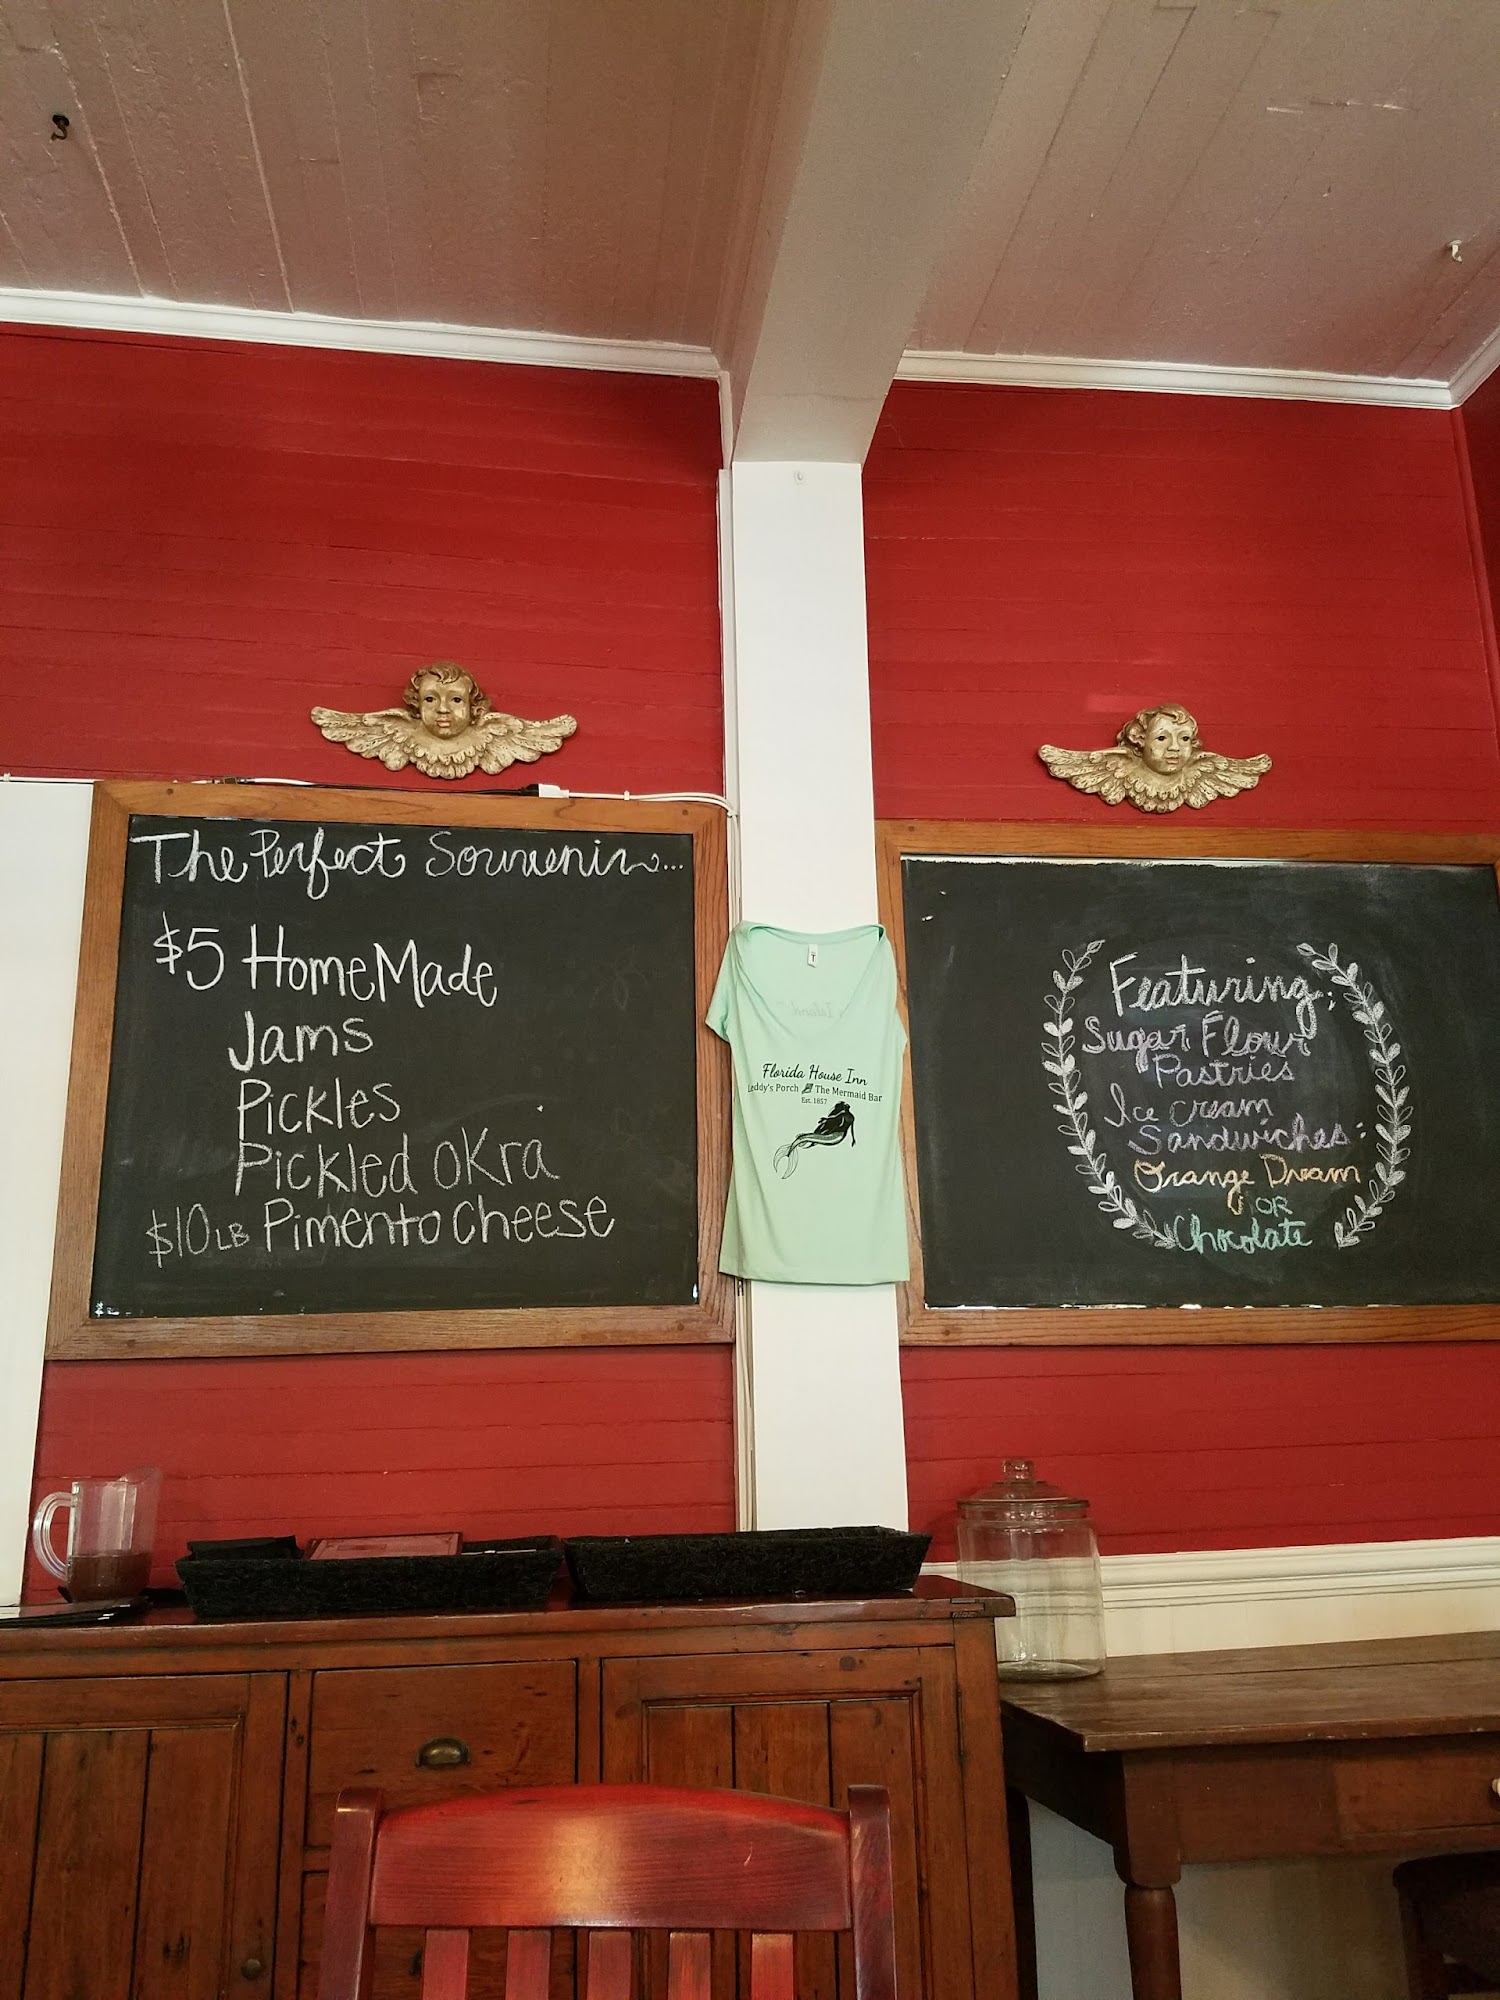 The Perfect Souvenir...
$5 HomeMade
Jams
Pickles
Pickled OKra
$10 LB Pimento Cheese
Florida House Inn
Leddy's Porch The Mermaid Bar
Est. 1857
Featuring:
Sugar Flour
Pastries
Ice cream
Sandwiches:
Orange Dream
OR
Chocolate